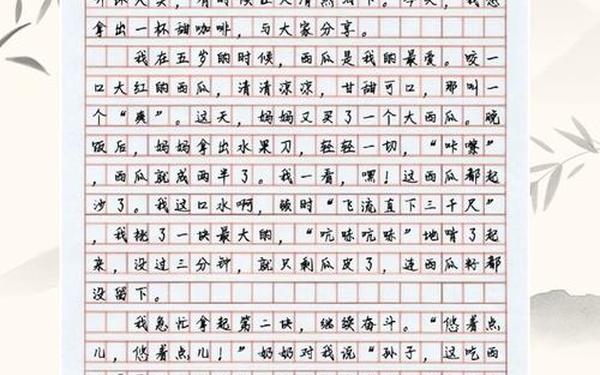 拿出一杯甜咖啡，与大家分享。
我在五岁的时候，西瓜是我的最爱。咬一
口大红的西瓜，清清凉凉，甘甜可口，那叫一
个“爽”。这天，妈妈又买了一个大西瓜。晚
饭后，妈妈拿出水果刀，轻轻一切，“咔嚓”
，西瓜就成两半了。我一看，嘿！这西瓜都起
沙了。我这口水啊，顿时“飞流直下三千尺”
，我挑了一块最大的，“吭哧吭哧”地啃了起
来，没过三分钟，就只剩瓜皮了，连西瓜籽都
没留下。
我急忙拿起第二块，继续奋斗。“悠着点
儿，悠着点儿！”奶奶对我说“孙子，这吃西